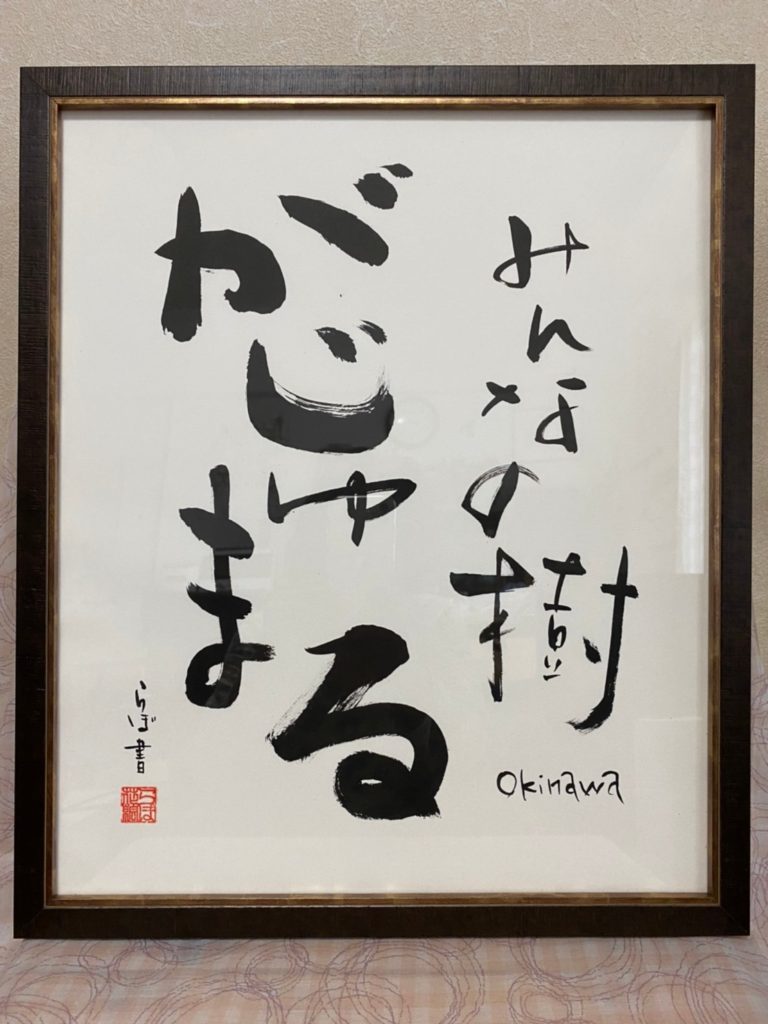 みんなの樹
Okinawa
がじゅまる
らぼ書